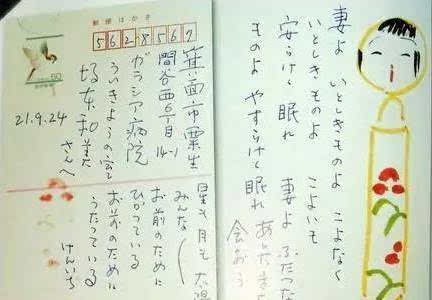 郵便はがき
562-8567
箕面市粟生
間谷西6丁目
14-1
ガラシア病院
ういきょうの室
坂本和美
さんへ
21.9.24
60
星も月も太陽
みんな
お前のために
ひかっている
お前のために
うたっている
けんいち
妻よ いとしきものよ こよなく
いとしきものよ こよいも
安らけく 眠れ 妻よ ふたつな
ものよ やすらけく眠れ
あしたまた
会おう